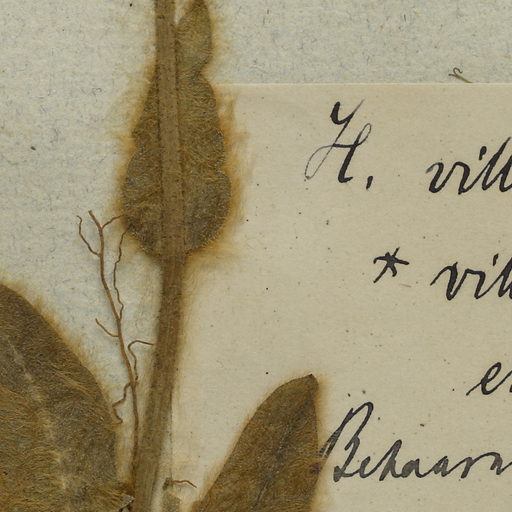 H. vill
* vill
e
Behaarun